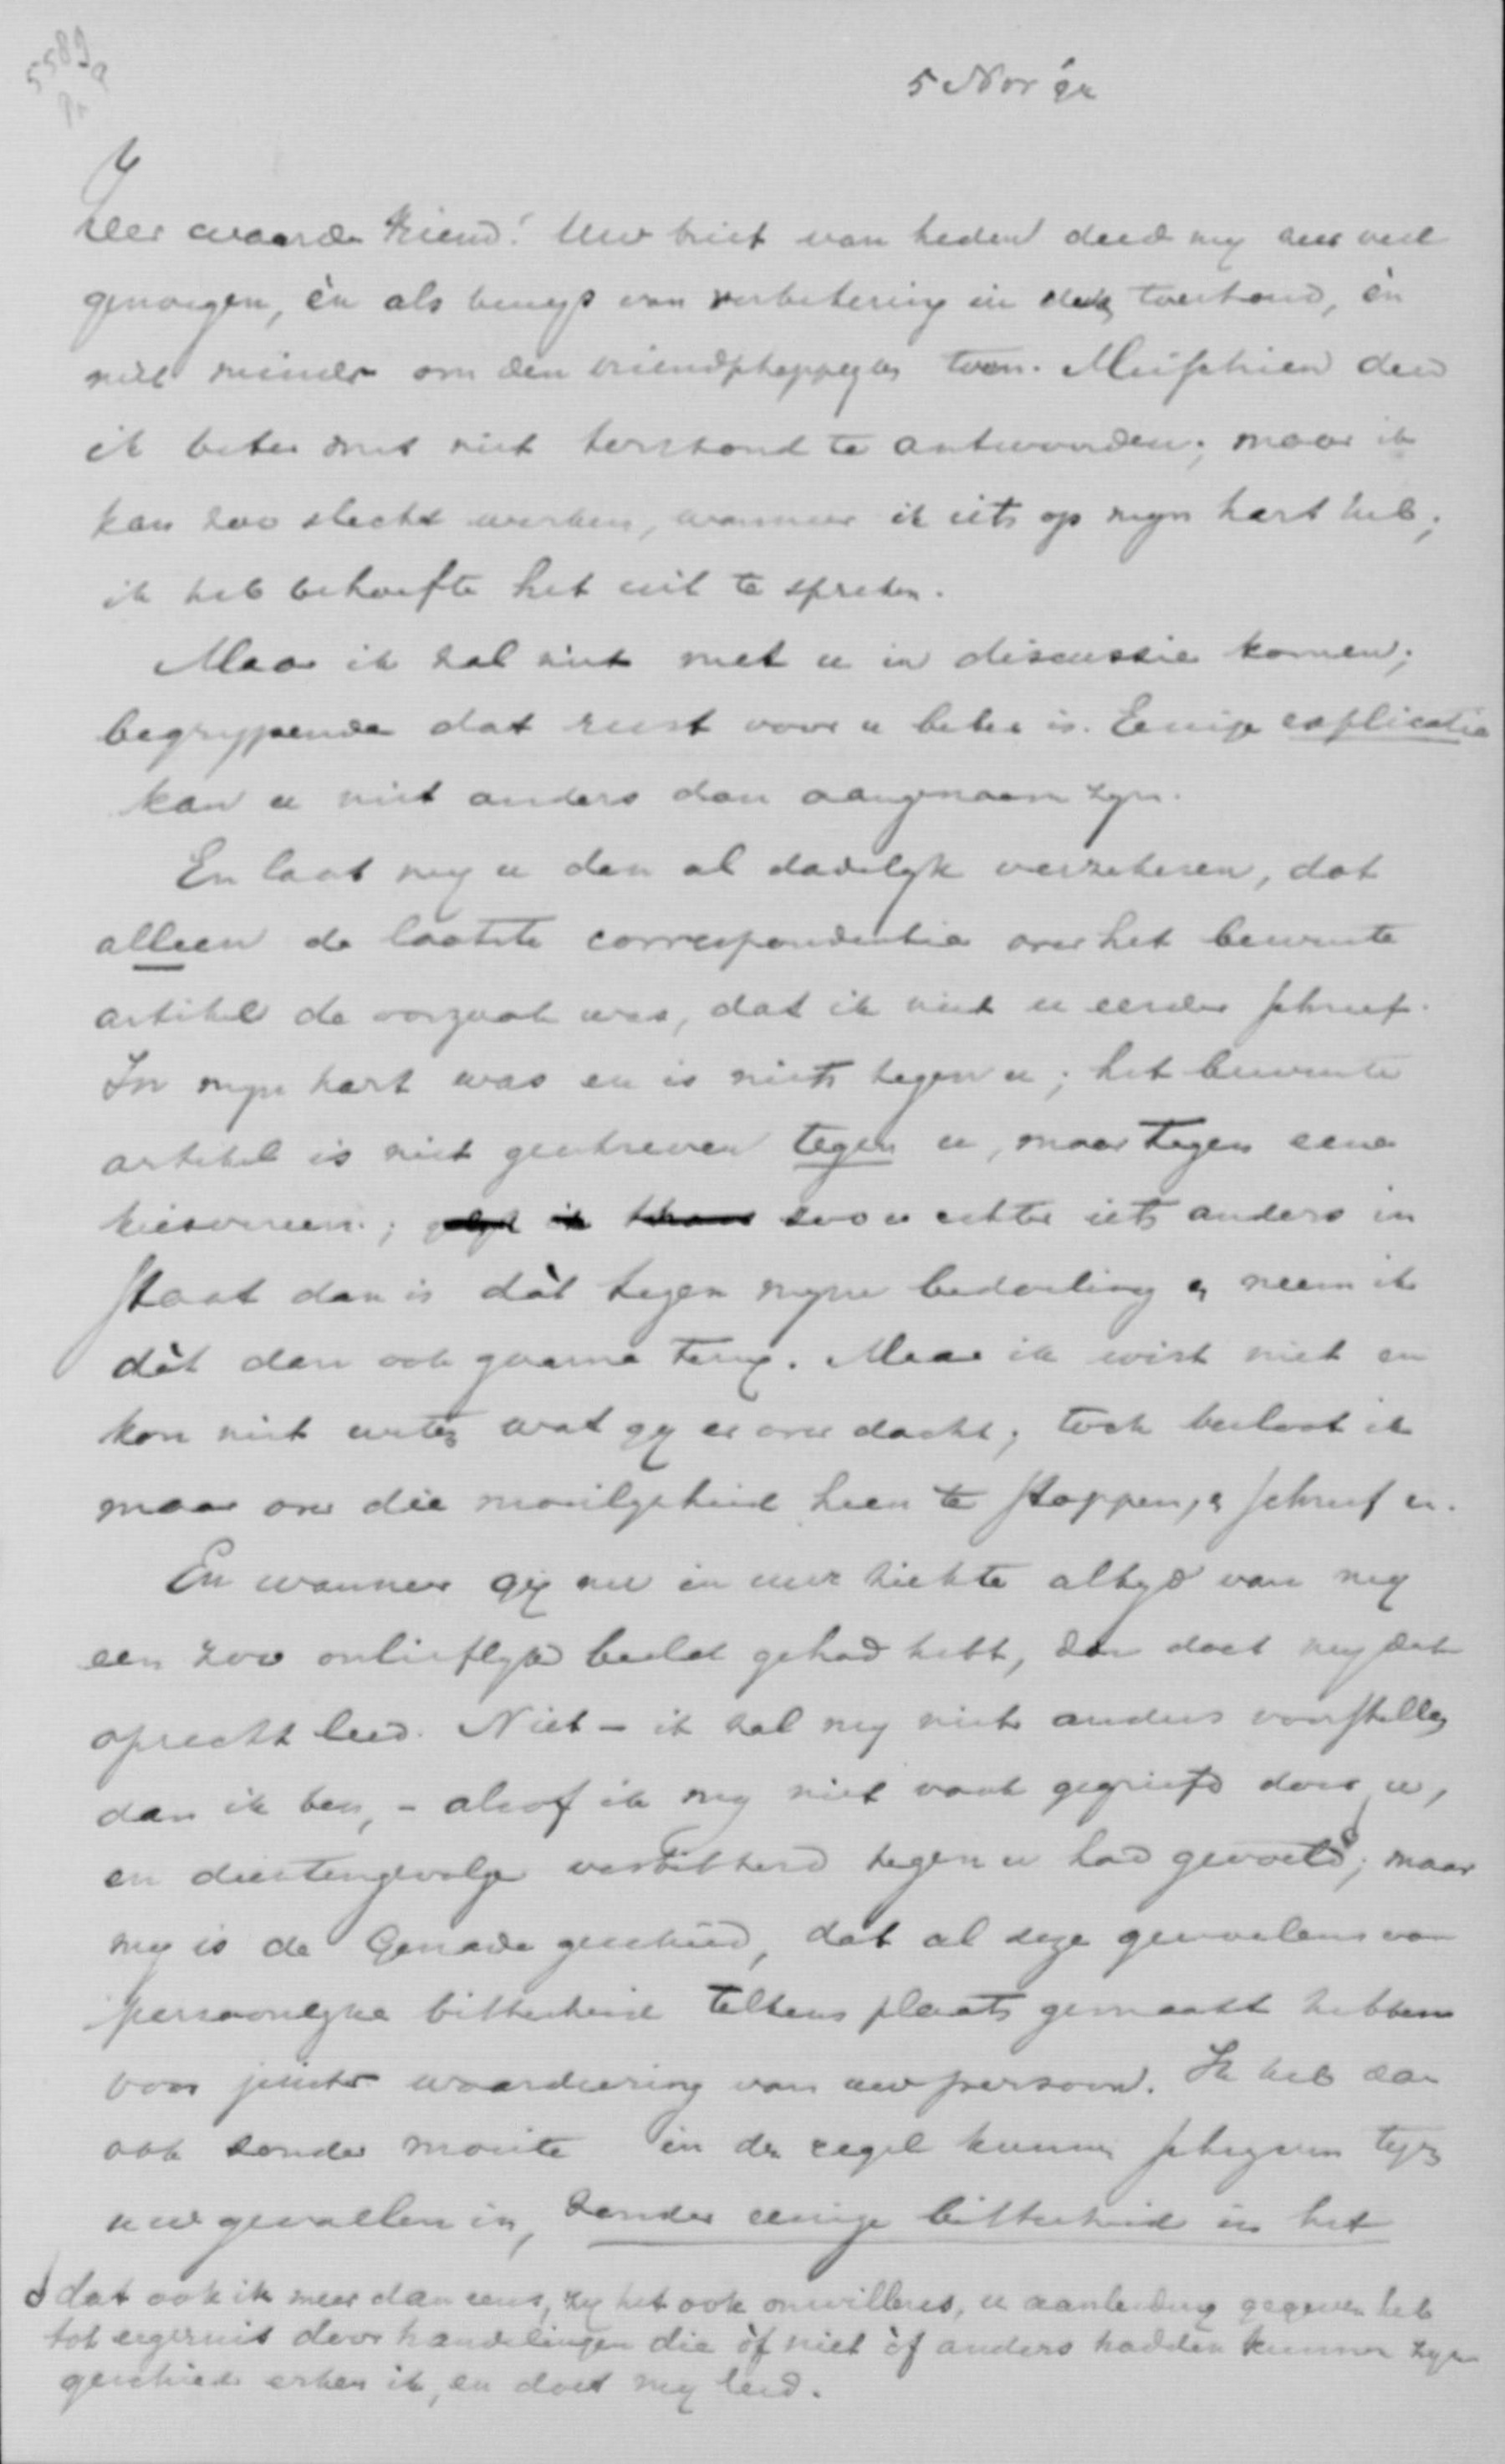 5589a
5 Nov 92
Zeer waarde Vriend! Uw brief van heden deed my zeer veel
genoegen, èn als bewys van verbetering in den toestand, èn
niet minder om den vriendschappelyken toon. Misschien deed
ik beter met niet terstond te antwoorden; maar ik
kan zoo slecht werken, wanneer ik iets op myn hart heb;
ik heb behoefte het uit te spreken.
Maar ik zal niet met u in discussie komen;
begrypende dat rust voor u beter is. Eenige explicatie
kan u niet anders dan aangenaam zyn.
En laat my u dan al dadelyk verzekeren, dat
alleen de laatste correspondentie over het bewuste
artikel de oorzaak was, dat ik niet u eerder schreef.
In myn hart was en is niets tegen u; het bewuste
artikel is niet geschreven tegen u, maar tegen eene
kiesvereen.; zoo u echter iets anders in
staat dan is dàt tegen myne bedoeling & neem ik
dàt dan ook gaarne terug. Maar ik wist niet en
kon niet weten wat gy er over dacht; toch besloot ik
maar over die moeilykheid heen te stappen, & schreef u.
En wanneer gy nu in uwe ziekte altyd van my
een zoo onlieflyk beeld gehad hebt, dan doet my dat
oprecht leed. Niet – ik zal my niet anders voorstellen
dan ik ben, – alsof ik my niet vaak gegriefd door u,
en dientengevolge verbitterd tegen u had gevoeld; maar
my is de Genade geschied, dat al deze gevoelens van
persoonlyke bitterheid telkens plaats gemaakt hebben
voor juister waardeering van uw persoon. Ik heb dan
ook zonder moeite in den regel kunnen schryven tegen
uw gevoelen in, zonder eenige bitterheid in het
dat ook ik meer dan eens, zy het ook onwillens, u aanleiding gegeven heb
tot ergernis door handelingen die òf niet òf anders hadden kunnen zyn
geschied erken ik, en doet my leed.